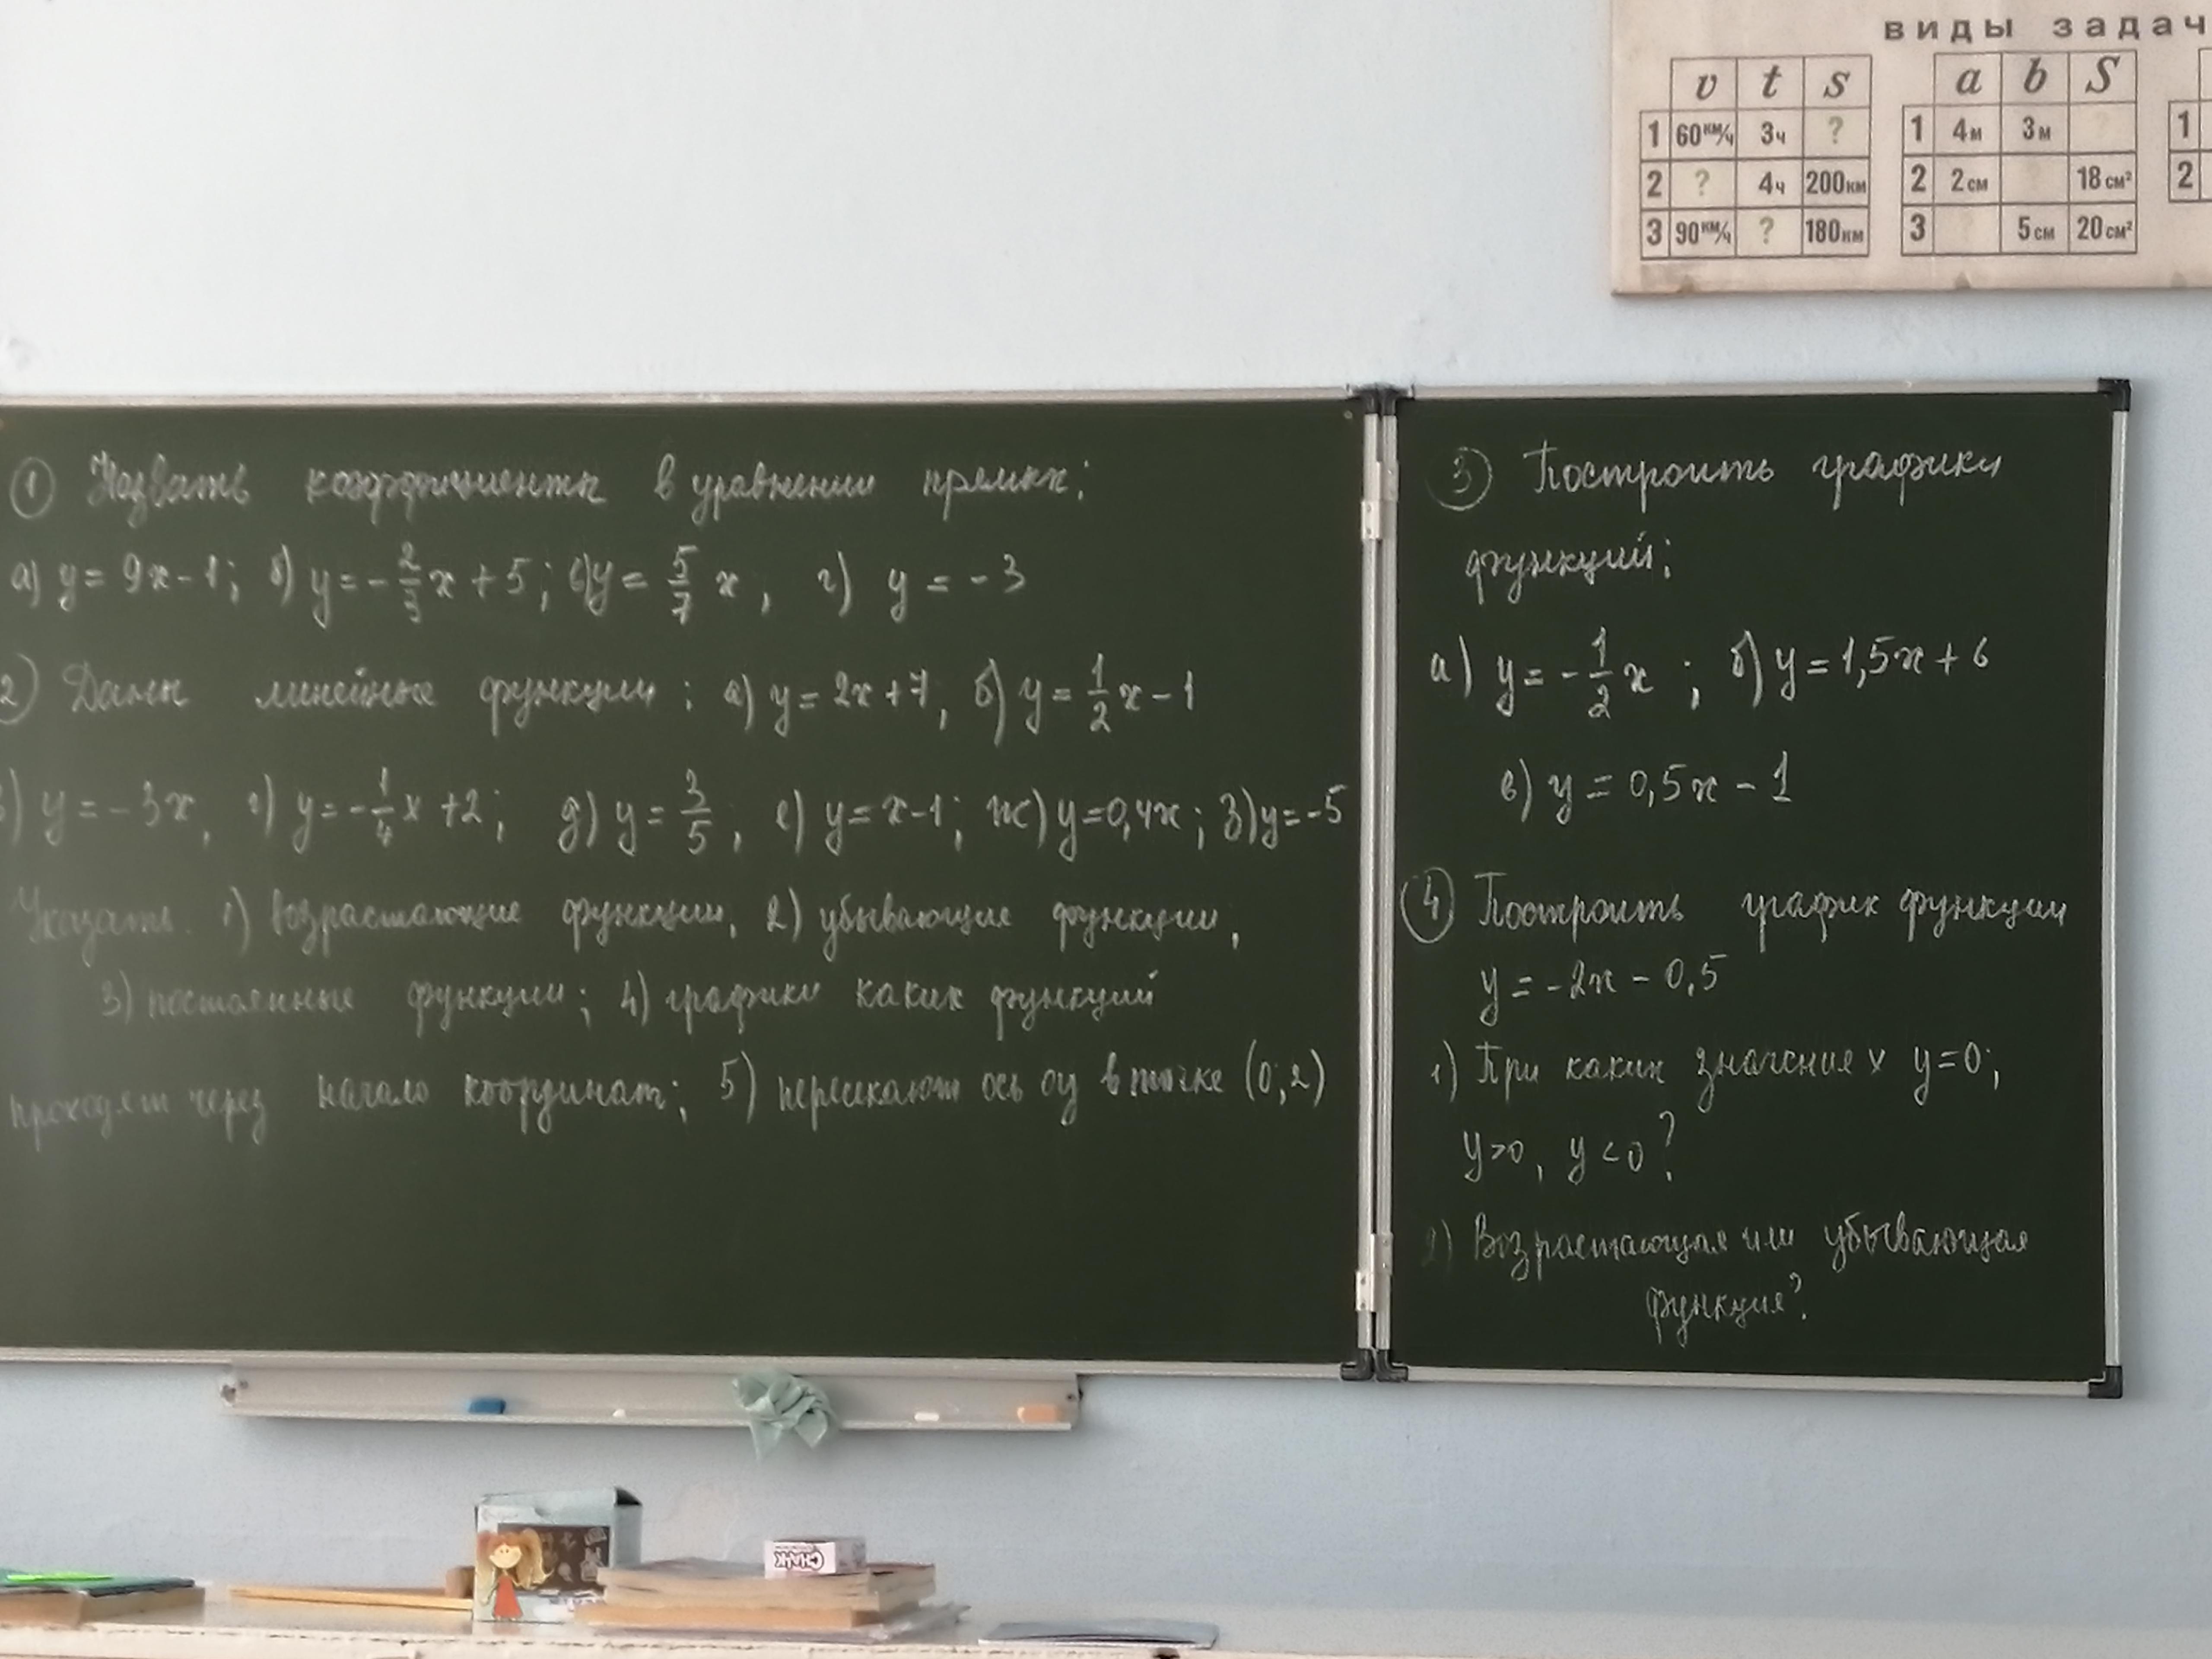 виды задач
v t s
1 60км/ч 3ч ?
2 ? 4ч 200км
3 90км/ч ? 180км
a b S
1 4м 3м ?
2 2см ? 18см²
3 ? 5см 20см²
1
2
① Назвать коэффициенты в уравнении прямых:
а) y = 9x - 1; б) y = - 2/3 x + 5; в) y = 5/7 x, г) y = - 3
2) Даны линейные функции: а) y = 2x + 7, б) y = 1/2 x - 1
в) y = - 3x, г) y = - 1/4 x + 2; д) y = 3/5, е) y = x - 1; ж) y = 0,4x; з) y = -5
Указать. 1) возрастающие функции, 2) убывающие функции,
3) постоянные функции; 4) графики каких функций
проходят через начало координат; 5) пересекают ось оу в точке (0; 2)
③ Построить графики
функций:
а) y = - 1/2 x ; б) y = 1,5x + 6
в) y = 0,5x - 1
④ Построить график функции
y = -2x - 0,5
1) При каких значениях y = 0;
y > 0, y < 0?
2) Возрастающая или убывающая
функция?
CHALK